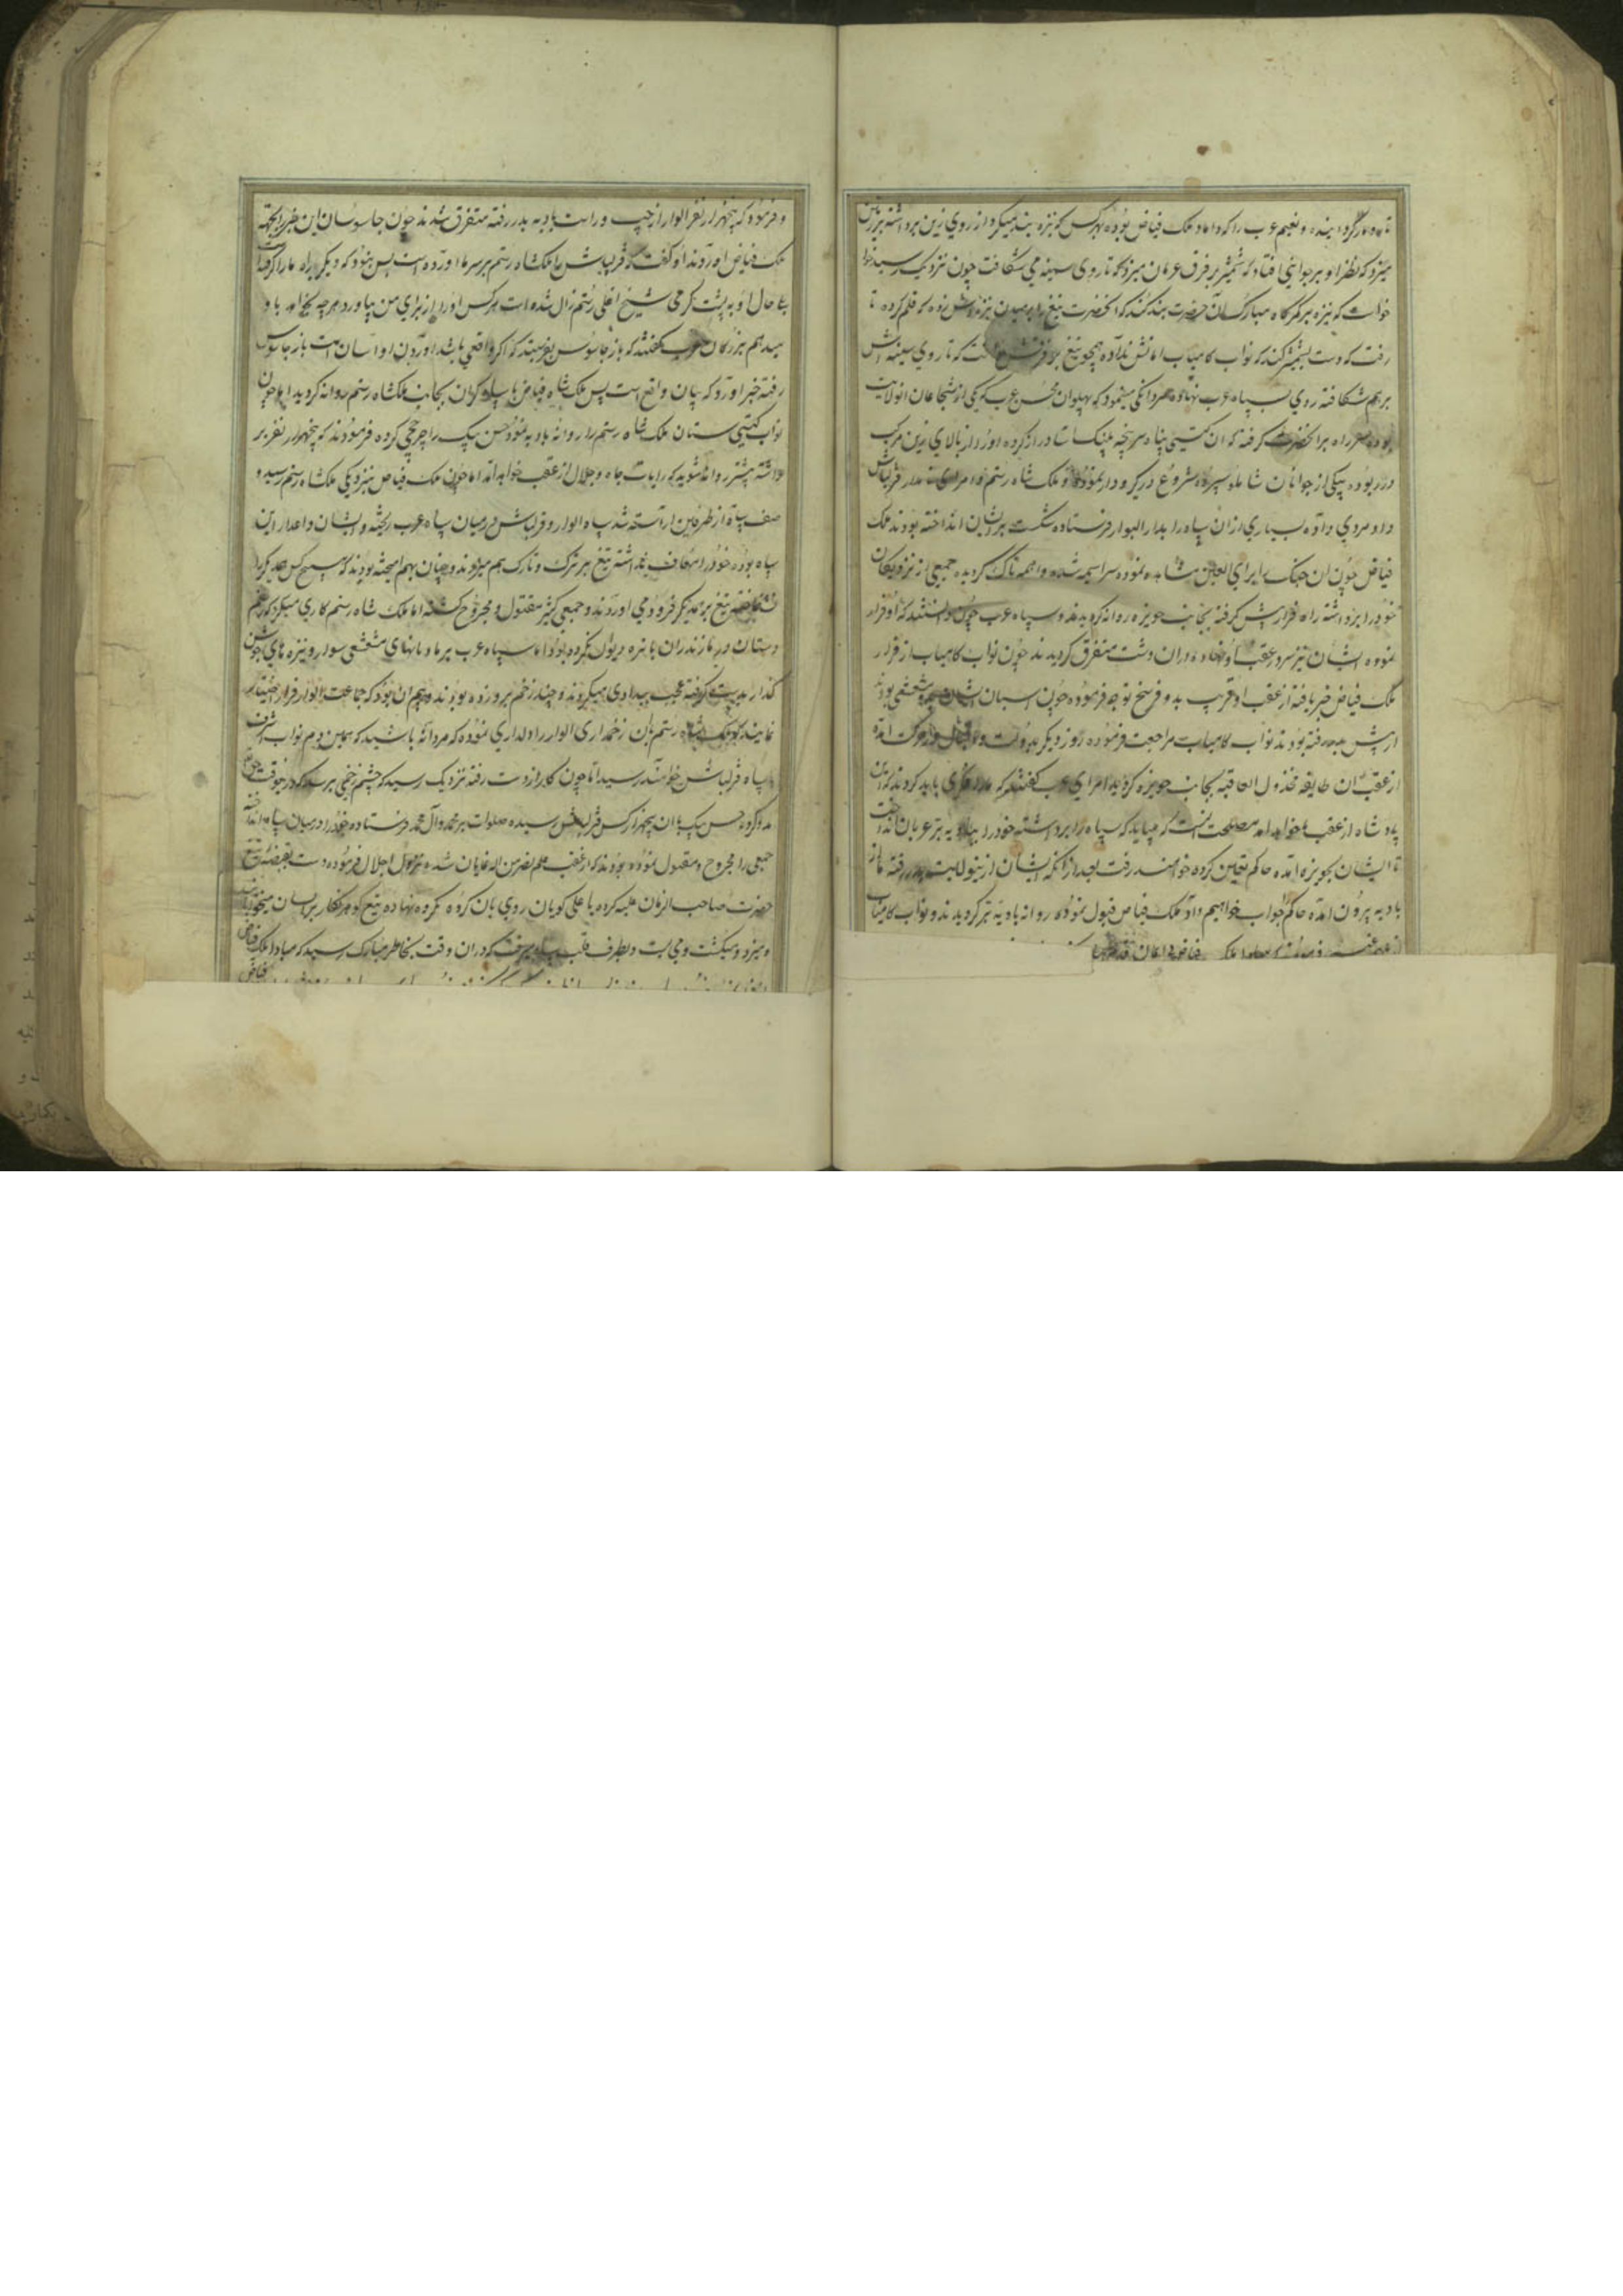 تا دمار گردانیده و نعیم عرب را که داماد ملک فیاض بوده بهر کس که نیزه بند میکرد از روی زین برداشته بر زمین
میزد که نظر او بر جوانی افتاد که شمشیر بر فرق عربان میزد که تا روی سینه می شکافت چون نزدیک رسید خوا
خواست که نیزه بر کمرگاه مبارک آن حضرت بند کند که آنحضرت تیغ را بر میدن نیزه اش زده که قلم کرده تا
رفت که دست بشمشیر کند که نواب کامیاب امانش نداده همچو تیغ بر فرقش که تا روی سینه اش
برهم شکافته روی بسپاه عرب نهاده مردانگی مینمود که پهلوان محسن عرب که یکی از شجاعان آن ولایت
بوده سر راه بر آنحضرت گرفته که آن گیتی پناه سرپنجه پلنگ آسا دراز کرده او را از بالای زین مرکب
در ربوده بیکی از جوانان شاملو سپرده شروع در گیر و دار نموده و ملک شاه رستم و امرای نامدار قزلباش
داد مردی داده بسیاری از آن سپاه را بدار البوار فرستاده شکست بر ایشان انداخته بودند ملک
فیاض چون آن جنگ را برای العین مشاهده نموده سراسیمه شده واهمه ناک گردیده جمعی از نزدیکان
خود را برداشته راه فرار پیش گرفته بجانب حویزه روانه گردیدند و سپاه عرب چون دانستند که او فرار
نموده ایشان نیز سر در عقب او نهاده در آن دشت متفرق گردیدند چون نواب کامیاب از فرار
ملک فیاض خبر یافته از عقب او قریب بدو فرسخ توجه فرموده چون اسبان ایشان مشعشعی بودند
از پیش بدر رفته بودند نواب کامیاب مراجعت فرموده روز دیگر بدولت و اقبال در حرکت آمده
از عقب آن طایفه مخذول العاقبه بجانب حویزه گردید امرای عرب گفتند که ما را فکری باید کرد که این
پادشاه از عقب ما خواهد آمد مصلحت آنست که میباید که سپاه را برداشته خود را ببادیه بر عربان انداخت
تا ایشان بحویزه آمده حاکم تعیین کرده خواهند رفت بعد از آنکه ایشان ازین ولایت بدر رفته ما از
بادیه بیرون آمده حاکم را جواب خواهیم داد ملک فیاض قبول نموده روانه بادیه بر گردیدند و نواب کامیاب
و فرموده که پنجهزار نفر الوار از چپ و راست بادیه بدر رفته متفرق شدند چون جاسوسان این خبر را بجهة
ملک فیاض آوردند او گفت که قزلباش ما ملکشاه رستم بر سر ما آورده است پس بنوز که دیگر راه ما را گرفت
بهمه حال او به پشت گرمی شیخ اغلی رستم زال شده است هر کس او را از برای من بیاورد هر چه بخواهد باو
میدهم بزرگان عرب گفتند که باز جاسوس بفرستید که اگر واقعی باشد آوردن او آسان است باز جاسوس
رفته خبر آورد که بیان واقع است پس ملک شاه فیاض با سپاه گران بجانب ملکشاه رستم روانه گردید اما چون
نواب گیتی ستان ملک شاه رستم را روانه بادیه نمود حسن بیک را چرخچی کرده فرمودند که پنجهزار نفر بر
داشته پیشتر روانه شوید که رایات جاه و جلال از عقب خواهد آمد اما چون ملک فیاض بنزدیکی ملکشاه رستم رسید و
صف سپاه از طرفین آراسته شد سپاه الوار و قزلباش در میان سپاه عرب ریخته و ایشان و اعدا را این
سپاه بوده خود را معاف نداشته تیغ بر ترک و تارک هم میزدند و چنان بهم آمیخته بودند که هیچ کس همدیگر را
نشناخته تیغ بر یکدیگر فرود می آوردند و جمعی کثیر مقتول و مجروح گشته اما ملک شاه رستم کاری میکرد که رستم
دستان در مازندران با نره دیوان نکرده بود اما سپاه عرب بر مادیانهای مشعشعی سوار و نیزه های جوشن
گذار بدست گرفته عجب بیدادی میکردند و چند زخم بر و زده بودند و بیم آن بود که جماعت الوار فرار اختیار
نمایند که ملک شاه رستم بآن زخمداری الوار را دلداری نموده که مردانه باشید که همین دم نواب اشرف
با سپاه قزلباش خواهند رسید اما چون کار از دست رفته نزدیک رسید که چشم زخمی برسد که درین وقت حق
مدد کرده حسن بیک با آن پنجهزار کس قزلباش رسیده صلوات بر محمد و آل محمد فرستاده خود را در میان سپاه انداخته
جمعی را مجروح و مقتول نموده بودند که از عقب علم نصر من الله نمایان شده نزول اجلال فرموده دست بقبضه تیغ
حضرت صاحب الزمان علیه کرده یا علی گویان روی بآن گروه مکروه نهاده تیغ گوهر نگار بر ایشان میخوابانید
و میزد و میکشت و می بست و بطرف قلب سپاه میرفت که در آن وقت بخاطر مبارک رسید که مبادا ملک فیاض